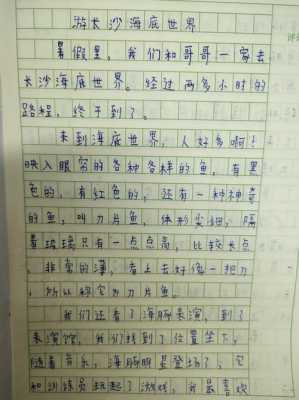 游长沙海底世界
暑假里，我们和哥哥一家去
长沙海底世界。经过两多小时的
路程，终于到了。
来到海底世界，人好多啊！
映入眼帘的各种各样的鱼，有黑
色的，有红色的，还有一种神奇
的鱼，叫刀片鱼，体形尖细，隔
着玻璃只有一点点高，比较长点
，非常的薄，看上去好像一把刀
，所以称它为刀片鱼。
我们还看了海豚表演，到了
表演馆，我们找到了位置坐下，
随着音乐，海豚明星登场了，它
和训练员玩起了游戏，我最喜欢